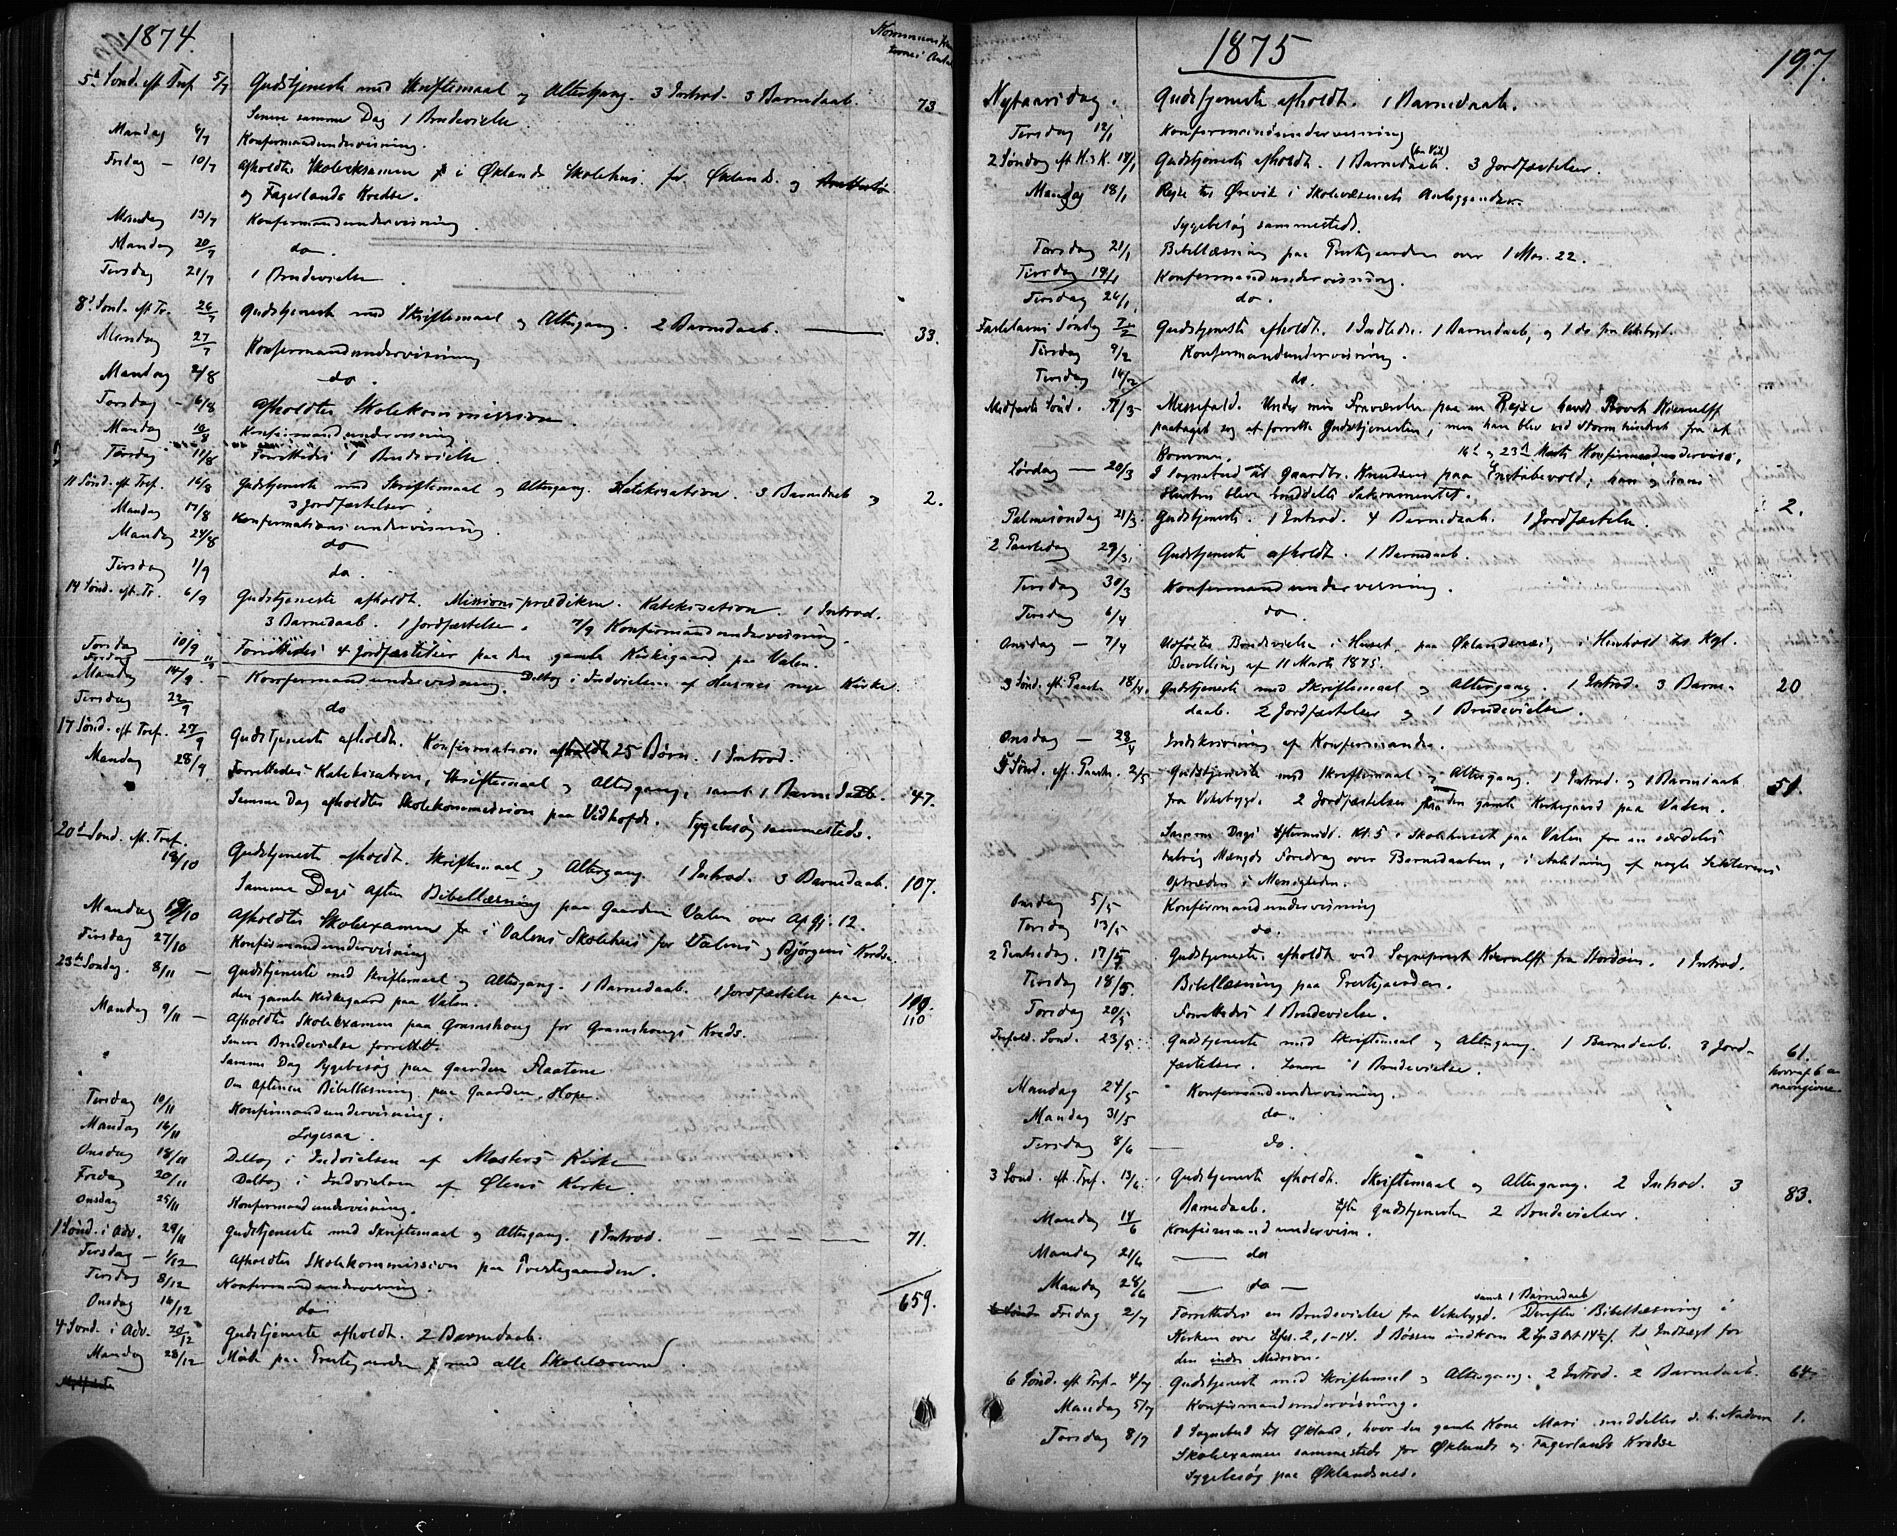 1874.
5te Sønd. eft Tref. 5/7 Gudstjeneste med Skriftemaal og Altergang. 3 Introd. 3 Barnedaab. 73
Senere samme Dag 1 Brudevielse.
Mandag 6/7 Konfirmandundervisning.
Fredag — 10/7 Afholdtes Skoleexamen i Øklands Skolehus for Øklands og
og Fagerlands Kredse.
Mandag 13/7 Konfirmandundervisning
Mandag 20/7 do.
Tirsdag 21/7 1 Brudevielse
8de Sønd. eft Tr. 26/7 Gudstjeneste med Skriftemaal og Altergang. 2 Barnedaab. — 33.
Mandag 27/7 Konfirmandundervisning
Mandag 2/8 do.
Torsdag — 6/8 Afholdtes Skolekommission.
Mandag 10/8 Konfirmandundervisning
Tirsdag 11/8 Forrettedes 1 Brudevielse.
11 Sønd. eft Tref. 16/8 Gudstjeneste med Skriftemaal og Altergang. Katekisation. 3 Barnedaab og 2.
3 Jordfæstelser.
Mandag 17/8 Konfirmationsundervisning
Mandag 24/8 do
Tirsdag 1/9 do.
14 Sønd. eft. Tr. 6/9 Gudstjeneste afholdt. Missionsprædiken. Katekisation. 1 Introd.
3 Barnedaab. 1 Jordfæstelse. 7/9 Konfirmandundervisning.
Torsdag 10/9 Forrettedes 4 Jordfæstelser paa den gamle Kirkegaard paa Valen.
Fredag 11/9 Deltog i Indvielsen af Husnes nye Kirke
Mandag 14/9 — Konfirmandundervisning.
Tirsdag 22/9 do
17 Sønd. eft Tref. 27/9 Gudstjeneste afholdt. Konfirmation afholdt 25 Børn. 1 Introd.
Mandag 28/9 Forrettedes Katekisation, Skriftemaal og Altergang, samt 1 Barnedaab. 47.
Samme Dag afholdtes Skolekommission paa Vidhofde. Sygebesøg sammesteds.
20de Sønd. eft. Tref.
18/10 Gudstjeneste afholdt. Skriftemaal og Altergang. 1 Introd. 3 Barnedaab. 107.
Samme Dags Aften Bibellæsning paa Gaarden Valen over Ap. Gj. 12.
Mandag 19/10 Afholdtes Skoleexamen i Valens Skolehus for Valens og Bjørgens Kredse.
Tirsdag 27/10 Konfirmandundervisning
23de Søndag. 8/11 — Gudstjeneste med Skriftemaal og Altergang. 1 Barnedaab. 1 Jordfæstelse paa
den gamle Kirkegaard paa Valen. 110
Mandag 9/11 — Afholdtes Skoleexamen paa Gramshoug for Gramshougs Kreds.
Senere Brudevielse forrettet.
Samme Dag Sygebesøg paa Gaarden Flaatene
Om Aftenen Bibellæsning paa Gaarden Hope.
Tirsdag 10/11 Konfirmandundervisning.
Mandag 16/11 Ligesaa.
Onsdag 18/11 Deltog i Indvielsen af Mosters Kirke
Fredag 20/11 Deltog i Indvielsen af Ølens Kirke.
Onsdag 25/11 Konfirmandundervisning.
1 Sønd. i Adv. 29/11 Gudstjeneste med Skriftemaal og Altergang. 1 Introd. — — — 71.
Tirsdag — 1/12 Afholdtes Skolekommission paa Prestegaarden.
Tirsdag 8/12 Konfirmandundervisning. 659.
Onsdag 16/12 do
4 Sønd. i Adv. 20/12 Gudstjeneste afholdt. 2 Barnedaab.
Mandag 28/12 Møde paa Prestegaarden med alle Skolelærerne.
1875
197.
Nytaarsdag. Gudstjeneste afholdt. 1 Barnedaab.
Tirsdag 12/1 Konfirmandundervisning
2 Søndag eft H. 3 K. 17/1 Gudstjeneste afholdt. 1 Barnedaab. 3 Jordfæstelser.
Mandag 18/1 Rejse til Ørevik i Skolevæsenets Anliggender.
Sygebesøg sammesteds.
Torsdag 21/1 Bibellæsning paa Prestegaarden over 1 Mos. 22.
Tirsdag 19/1 Konfirmandundervisning.
Tirsdag 26/1 do.
Fastelavns Søndag 7/2 Gudstjeneste afholdt. 1 Indledn. 1 Barnedaab, og 1 do. fra Vikebygd.
Tirsdag 9/2 Konfirmandundervisning.
Tirsdag 16/2 do.
Midfaste Sønd. 7/3 Messefald. Under min Fraværelse paa en Rejse havde Provst Kierulff
paataget sig at forrette Gudstjenesten, men han blev ved Storm hindret fra at
komme. 16de og 23de Marts Konfirmandundervisn.
Løvdag — 20/3 I Sognebud til Gaardbr. Knudsen paa Enstabevold; han og hans
Hustru bleve meddelte Sakramentet. 2.
Palmesøndag 21/3. Gudstjeneste. 1 Introd. 4 Barnedaab. 1 Jordfæstelse.
2 Paaskedag 29/3. Gudstjeneste afholdt. 1 Barnedaab.
Tirsdag 30/3 Konfirmandundervisning.
Tirsdag 6/4 do.
Onsdag — 7/4 Udførtes Brudevielse i Huset paa Øklandsnes, i Henhold til Kgl.
Bevilling af 11 Marts 1875.
3 Sønd. eft. Paaske. 18/4. Gudstjeneste med Skriftemaal og Altergang. 1 Introd. 3 Barne- 20
daab. 2 Jordfæstelser og 1 Brudevielse.
Onsdag — 28/4 Indskrivning af Konfirmander.
5 Sønd. eft. Paaske. 2/5 Gudstjeneste med Skriftemaal og Altergang. 1 Introd. og 1 Barnedaab 51.
fra Vikebygd. 2 Jordfæstelser paa den gamle Kirkegaard paa Valen.
Samme Dags Eftermidd. Kl. 5 i Skolehuset paa Valen for en særdeles
talrig Mængde Foredrag over Barnedaaben, i Anledning af nogle Sekterers
Optræden i Menigheden.
Onsdag 5/5 Konfirmandundervisning
Torsdag 13/5 do.
2 Pintsedag. 17/5 Gudstjeneste afholdt ved Sogneprest Kierulff fra Stordøen. 1 Introd.
Tirsdag 18/5. Bibellæsning paa Prestegaarden.
Torsdag 20/5 Forrettedes 1 Brudevielse.
Trefold. Sønd. 23/5. Gudstjeneste med Skriftemaal og Altergang. 1 Barnedaab. 3 Jord- 61.
fæstelser. Senere 1 Brudevielse.
Mandag 24/5 Konfirmandundervisning.
Mandag 31/5 do.
Tirsdag 8/6 — do.
3 Sønd. eft. Tref. 13/6. Gudstjeneste afholdt. Skriftemaal og Altergang. 2 Introd. 3 83.
Barnedaab. Efter Gudstjenesten 2 Brudevielser.
Mandag 14/6 Konfirmandundervisn.
Mandag 21/6 — do
Mandag 28/6 — do —
samt 1 Barnedaab
Fredag 2/7 Forrettedes en Brudevielse fra Vikebygd. Derefter Bibellæsning i
Kirken over Efes. 2, 1-14. I Bøssen indkom 2 Sp 3 Ort 14½ s. til Indtægt for
den indre Mission.
6 Sønd. eft Tref. 4/7 Gudstjeneste med Skriftemaal og Altergang. 2 Introd. 2 Barnedaab. 64.
Mandag 5/7 Konfirmandundervisning.
Torsdag 8/7 I Sognebud til Økland, hvor den gamle Kone Mari meddeltes d. h. Nadvere 1.
Skoleexamen sammesteds for Øklands og Fagerlands Kredse
Sygebesøg paa Øklandsnes.